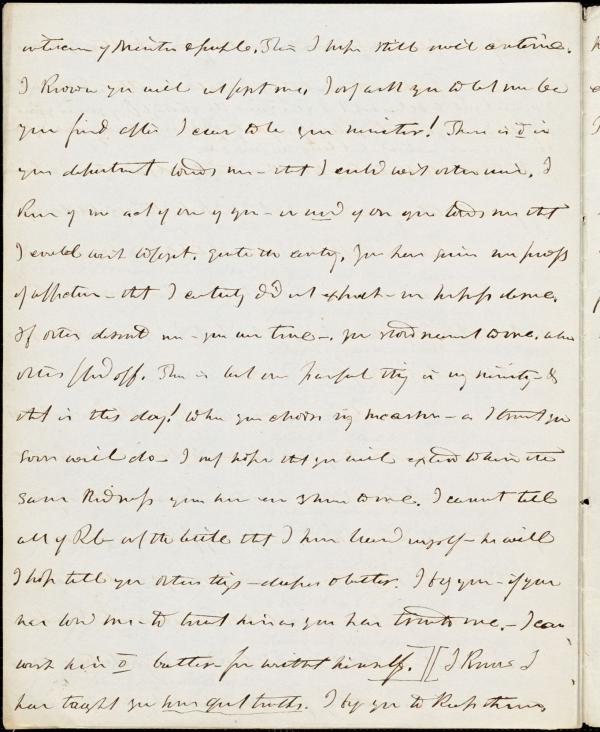 intercourse of Minister & people. This I hope still will continue.
I know you will respect me, I only ask you to let me be
your friend after I cease to be your minister! There is 0 in
your deportment towards me - that I could wish otherwise. I
know of no act of one of you - or word of one of you towards me that
I could wish to forget. quite the contrary, you have given me proofs
of affection - that I entirely did not expect - nor perhaps deserve.
If others desert me - you are true -. you stood nearest to me, when
others stood off. There is but one painful thing in my ministry - &
that is this day! When you choose my successor - as I trust you
soon will do - I only hope that you will extend to him the
same kindness you have ever shown to me. I cannot tell
all of Rel - only the little that I have learned myself - he will
I hope tell you other things - deeper & better. I beg you - if you
have loved me - to trust him as you have trusted me. - I can
wish him 0 better for with himself.] [I know I
have taught you some great truths. I beg you to keep them